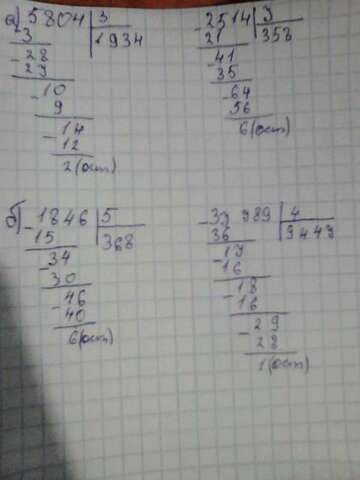 а) 5804 | 3
3 | 1934
- 28
23
- 10
9
- 14
12
2 (ост)
- 2514 | 7
21 | 358
- 41
35
- 64
56
6 (ост)
б) - 1846 | 5
15 | 368
- 34
30
- 46
40
6 (ост)
- 37 789 | 4
36 | 9447
- 17
16
- 18
16
- 29
28
1 (ост)